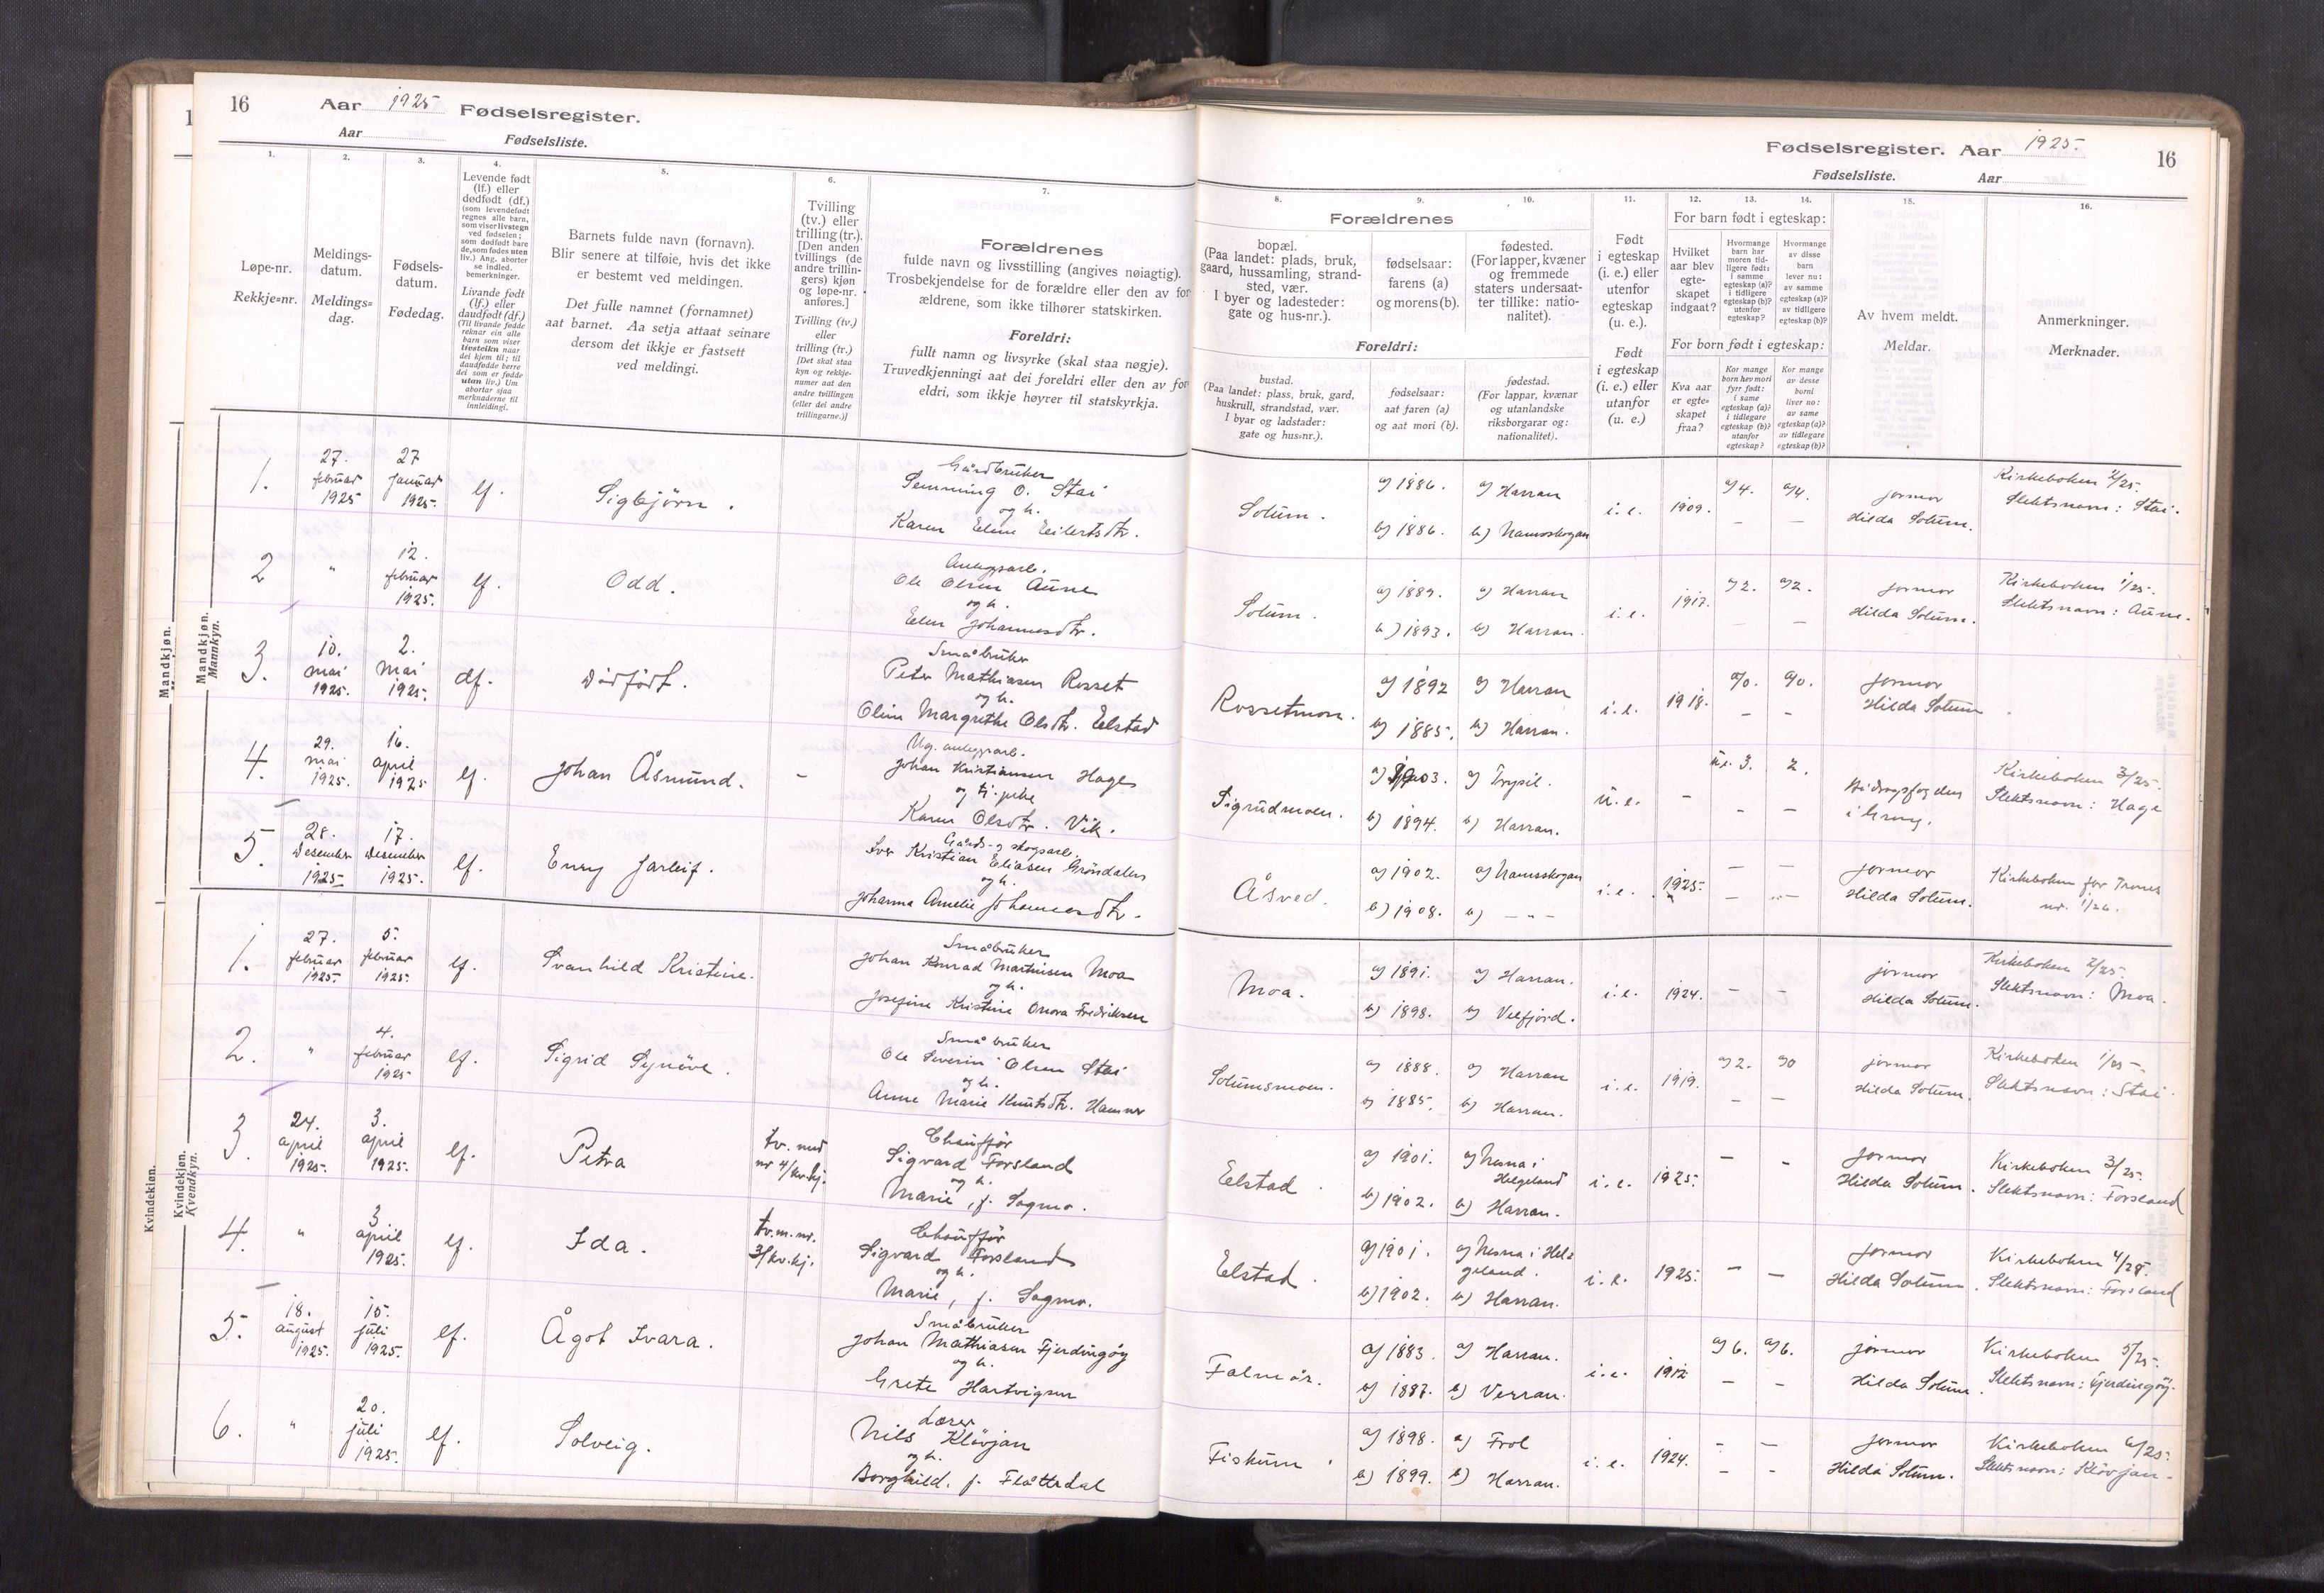 16 Aar 1925 Fødselsregister.
Aar Fødselsliste.
1.
Løpe-nr.
Rekkje=nr.
2.
Meldings-
datum.
Meldings=
dag.
3.
Fødsels-
datum.
Fødedag.
4.
Levende født
(lf.) eller
dødfødt (df.)
(som levendefødt
regnes alle barn,
som viser livstegn
ved fødselen;
som dødfødt bare
de, som fødes uten
liv.) Ang. aborter
se indled.
bemerkninger.
Livande født
(lf.) eller
daudfødt (df.)
(Til livande fødde
reknar ein alle
barn som viser
livsteikn naar
dei kjem til; til
daudfødde berre
dei som er fødde
utan liv.) Um
abortar sjaa
merknaderne til
innleidingi.
5.
Barnets fulde navn (fornavn).
Blir senere at tilføie, hvis det ikke
er bestemt ved meldingen.
Det fulle namnet (fornamnet)
aat barnet. Aa setja attaat seinare
dersom det ikkje er fastsett
ved meldingi.
6.
Tvilling
(tv.) eller
trilling (tr.).
[Den anden
tvillings (de
andre trillin-
gers) kjøn
og løpe-nr.
anføres.]
Tvilling (tv.)
eller
trilling (tr.)
[Det skal staa
kyn og rekkje-
numer aat den
andre tvillingen
(eller dei andre
trillingarne.)]
7.
Forældrenes
fulde navn og livsstilling (angives nøiagtig).
Trosbekjendelse for de forældre eller den av for
ældrene, som ikke tilhører statskirken.
Foreldri:
fullt namn og livsyrke (skal staa nøgje).
Truvedkjenningi aat dei foreldri eller den av for
eldri, som ikkje høyrer til statskyrkja.
Fødselsregister. Aar 1925. 16
Fødselsliste. Aar
8.
Forældrenes
bopæl.
(Paa landet: plads, bruk,
gaard, hussamling, strand-
sted, vær.
I byer og ladesteder:
gate og hus-nr.).
9.
fødselsaar:
farens (a)
og morens (b).
10.
fødested.
(For lapper, kvæner
og fremmede
staters undersaat-
ter tillike: natio-
nalitet).
Foreldri:
bustad.
(Paa landet: plass, bruk, gard,
huskrull, strandstad, vær.
I byar og ladstader:
gate og hus=nr.).
fødselsaar:
aat faren (a)
og aat mori (b).
fødestad.
(For lappar, kvænar
og utanlandske
riksborgarar og:
nationalitet).
11.
Født
i egteskap
(i. e.) eller
utenfor
egteskap
(u. e.).
Født
i egteskap
(i. e.) eller
utanfor
(u. e.)
12.
13.
14.
For barn født i egteskap:
Hvilket
aar blev
egte-
skapet
indgaat?
Hvormange
barn har
moren tid-
ligere født:
i samme
egteskap (a)?
i tidligere
egteskap (b)?
utenfor
egteskap?
Hvormange
av disse
barn
lever nu:
av samme
egteskap (a)?
av tidligere
egteskap (b)?
For born født i egteskap:
Kva aar
er egte=
skapet
fraa?
Kor mange
born hev mori
fyrr født:
i same
egteskap (a)?
i tidlegare
egteskap (b)?
utanfor
egteskap?
Kor mange
av desse
borni
liver no:
av same
egteskap (a)?
av tidlegare
egteskap (b)?
15.
Av hvem meldt.
Meldar.
16.
Anmerkninger.
Merknader.
Mandkjøn.
Mandkjøn.
Mannkyn.
1. 27. februar 1925 27 januar 1925. lf. Sigbjørn. Gårdbruker
Semming O. Stai
og h.
Karen Eline Eilertsdtr.
Solum. a) 1886. b) 1886. a) Harran b) Namsskogan i. e. 1909. a) 4. a) 4. jormor
Hilda Solum.
Kirkeboken 2/25.
Slektsnavn: Stai.
2 " 12. februar 1925. lf. Odd. Anlegsarb.
Ole Olsen Aune
og h.
Elen Johannesdtr.
Solum. a) 1889. b) 1893. a) Harran b) Harran. i. e. 1917. a) 2. a) 2. jormor
Hilda Solum.
Kirkeboken 1/25.
Slektsnavn: Aune.
3. 10. mai 1925. 2. mai 1925. df. Dødfødt. Småbruker
Peter Mathiasen Rosset
og h.
Oline Margrethe Olsdtr. Elstad
Rossetmoen. a) 1892 b) 1885. a) Harran b) Harran. i. e. 1918. a) 0. a) 0. jormor
Hilda Solum
4. 29. mai 1925. 16. april 1925 lf. Johan Åsmund. – Ug. anlegsarb.
Johan Kristiansen Hage
og
Karen Olsdtr. Vik.
Sigrudmoen. a) 1903. b) 1894. a) Trysil. b) Harran. u. e. – u.e. 3. 2. Bidragsfogden
i Grong.
Kirkeboken 3/25.
Slektsnavn: Hage
5. 28. Desember 1925 17. Desember 1925. lf. Enry Jarleif. Gårds- og skogsarb.
Iver Kristian Eliasen Grøndalen
og h.
Johanna Amelie Johannesdtr.
Åsved. a) 1902. b) 1908. a) Namsskogan b) – " – i. e. 1925. – – jormor
Hilda Solum.
Kirkeboken for Trones
nr. 1/26.
Kvindekjøn.
Kvindekjøn.
Kvendkyn.
1. 27. februar 1925 5. februar 1925. lf. Svanhild Kristine. Småbruker
Johan Konrad Martinsen Moa
og h.
Josefine Kristine Onora Fredriksen
Moa. a) 1891. b) 1898. a) Harran. b) Velfjord. i. e. 1924. – – jormor
Hilda Solum.
Kirkeboken 2/25.
Slektsnavn: Moa.
2. " 4. februar 1925 lf. Sigrid Synøve. Småbruker
Ole Severin Olsen Stai
og h.
Anne Marie Knutsdtr. Hamnes
Solumsmoen. a) 1888. b) 1885. a) Harran b) Harran. i. e. 1919. a) 2. a) 0 jormor
Hilda Solum.
Kirkeboken 1/25.
Slektsnavn: Stai.
3. 24. april 1925. 3. april 1925. lf. Petra tv. med
nr 4/kv.kj. Chauffør
Sigvard Forsland
og h.
Marie, f. Sagmo.
Elstad. a) 1901. b) 1902. a) Nesna i
Helgeland b) Harran. i. e. 1925. – – jormor
Hilda Solum.
Kirkeboken 3/25.
Slektsnavn: Forsland
4. " 3 april 1925. lf. Ida. tv. m. nr.
3/kv.kj. Chauffør
Sigvard Forsland
og h.
Marie, f. Sagmo.
Elstad. a) 1901. b) 1902. a) Nesna i Hel=
geland. b) Harran. i. e. 1925. – – jormor
Hilda Solum.
Kirkeboken 4/25.
Slektsnavn: Forsland
5. 18. august 1925. 15. juli 1925. lf. Ågot Ivara. Småbruker
Johan Mathiasen Fjerdingøy
og h.
Grete Hartvigsen
Falmør. a) 1883. b) 1887. a) Harran. b) Verran. i. e. 1912 a) 6. a) 6. jormor
Hilda Solum.
Kirkeboken 5/25.
Slektsnavn: Fjerdingøy.
6. " 20. juli 1925. lf. Solveig. Lærer
Nils Kløvjan
og h.
Borghild, f. Flåttedal
Fiskum. a) 1898. b) 1899. a) Frol b) Harran. i. e. 1924. – – jormor
Hilda Solum.
Kirkeboken 6/25.
Slektsnavn: Kløvjan.